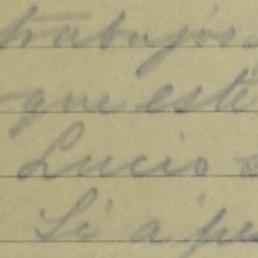 trabajos,
que este
Lucio
Si a pe